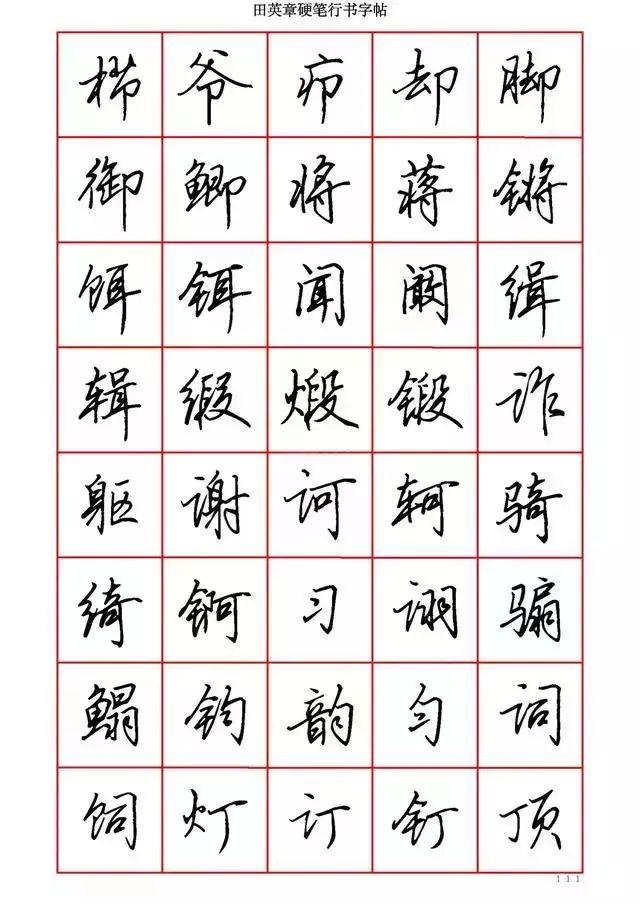 田英章硬笔行书字帖
栉爷疖却脚
御鲫将蒋锵
饵铒闻阚缉
辑缎煅锻诈
躯谢诃轲骑
绮锕习诩骟
鳎钧韵匀词
饲灯订钉顶
111